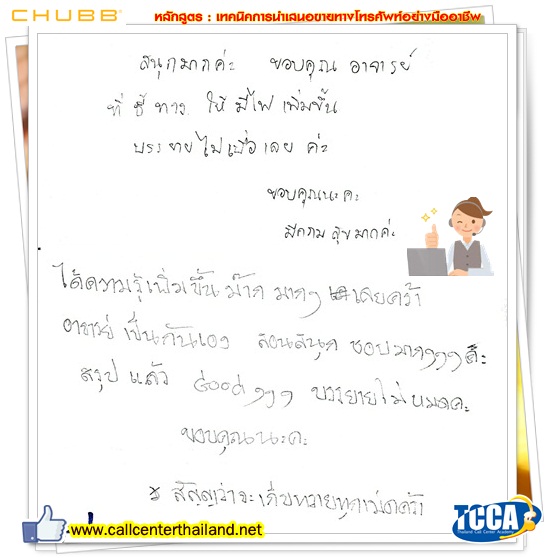 CHUBB®
หลักสูตร : เทคนิคการนำเสนอขายทางโทรศัพท์อย่างมืออาชีพ
สนุกมากค่ะ ขอบคุณ อาจารย์
ที่ชี้ทาง ให้มีไฟเพิ่มขึ้น
บรรยายไม่เบื่อเลย ค่ะ
ขอบคุณนะคะ
มีความสุขมากค่ะ
ได้ความรู้เพิ่มขึ้นม๊าก มากๆ เลยคร้า
อาจารย์ เป็นกันเอง สอนสนุก ชอบมากๆๆๆ ค่ะ
สรุป แล้ว Goodๆๆๆ บรรยายไม่หมดคะ
ขอบคุณนะคะ
* สัญญาว่าจะเก็บ
www.callcenterthailand.net
TCCA
Thailand Call Center Academy